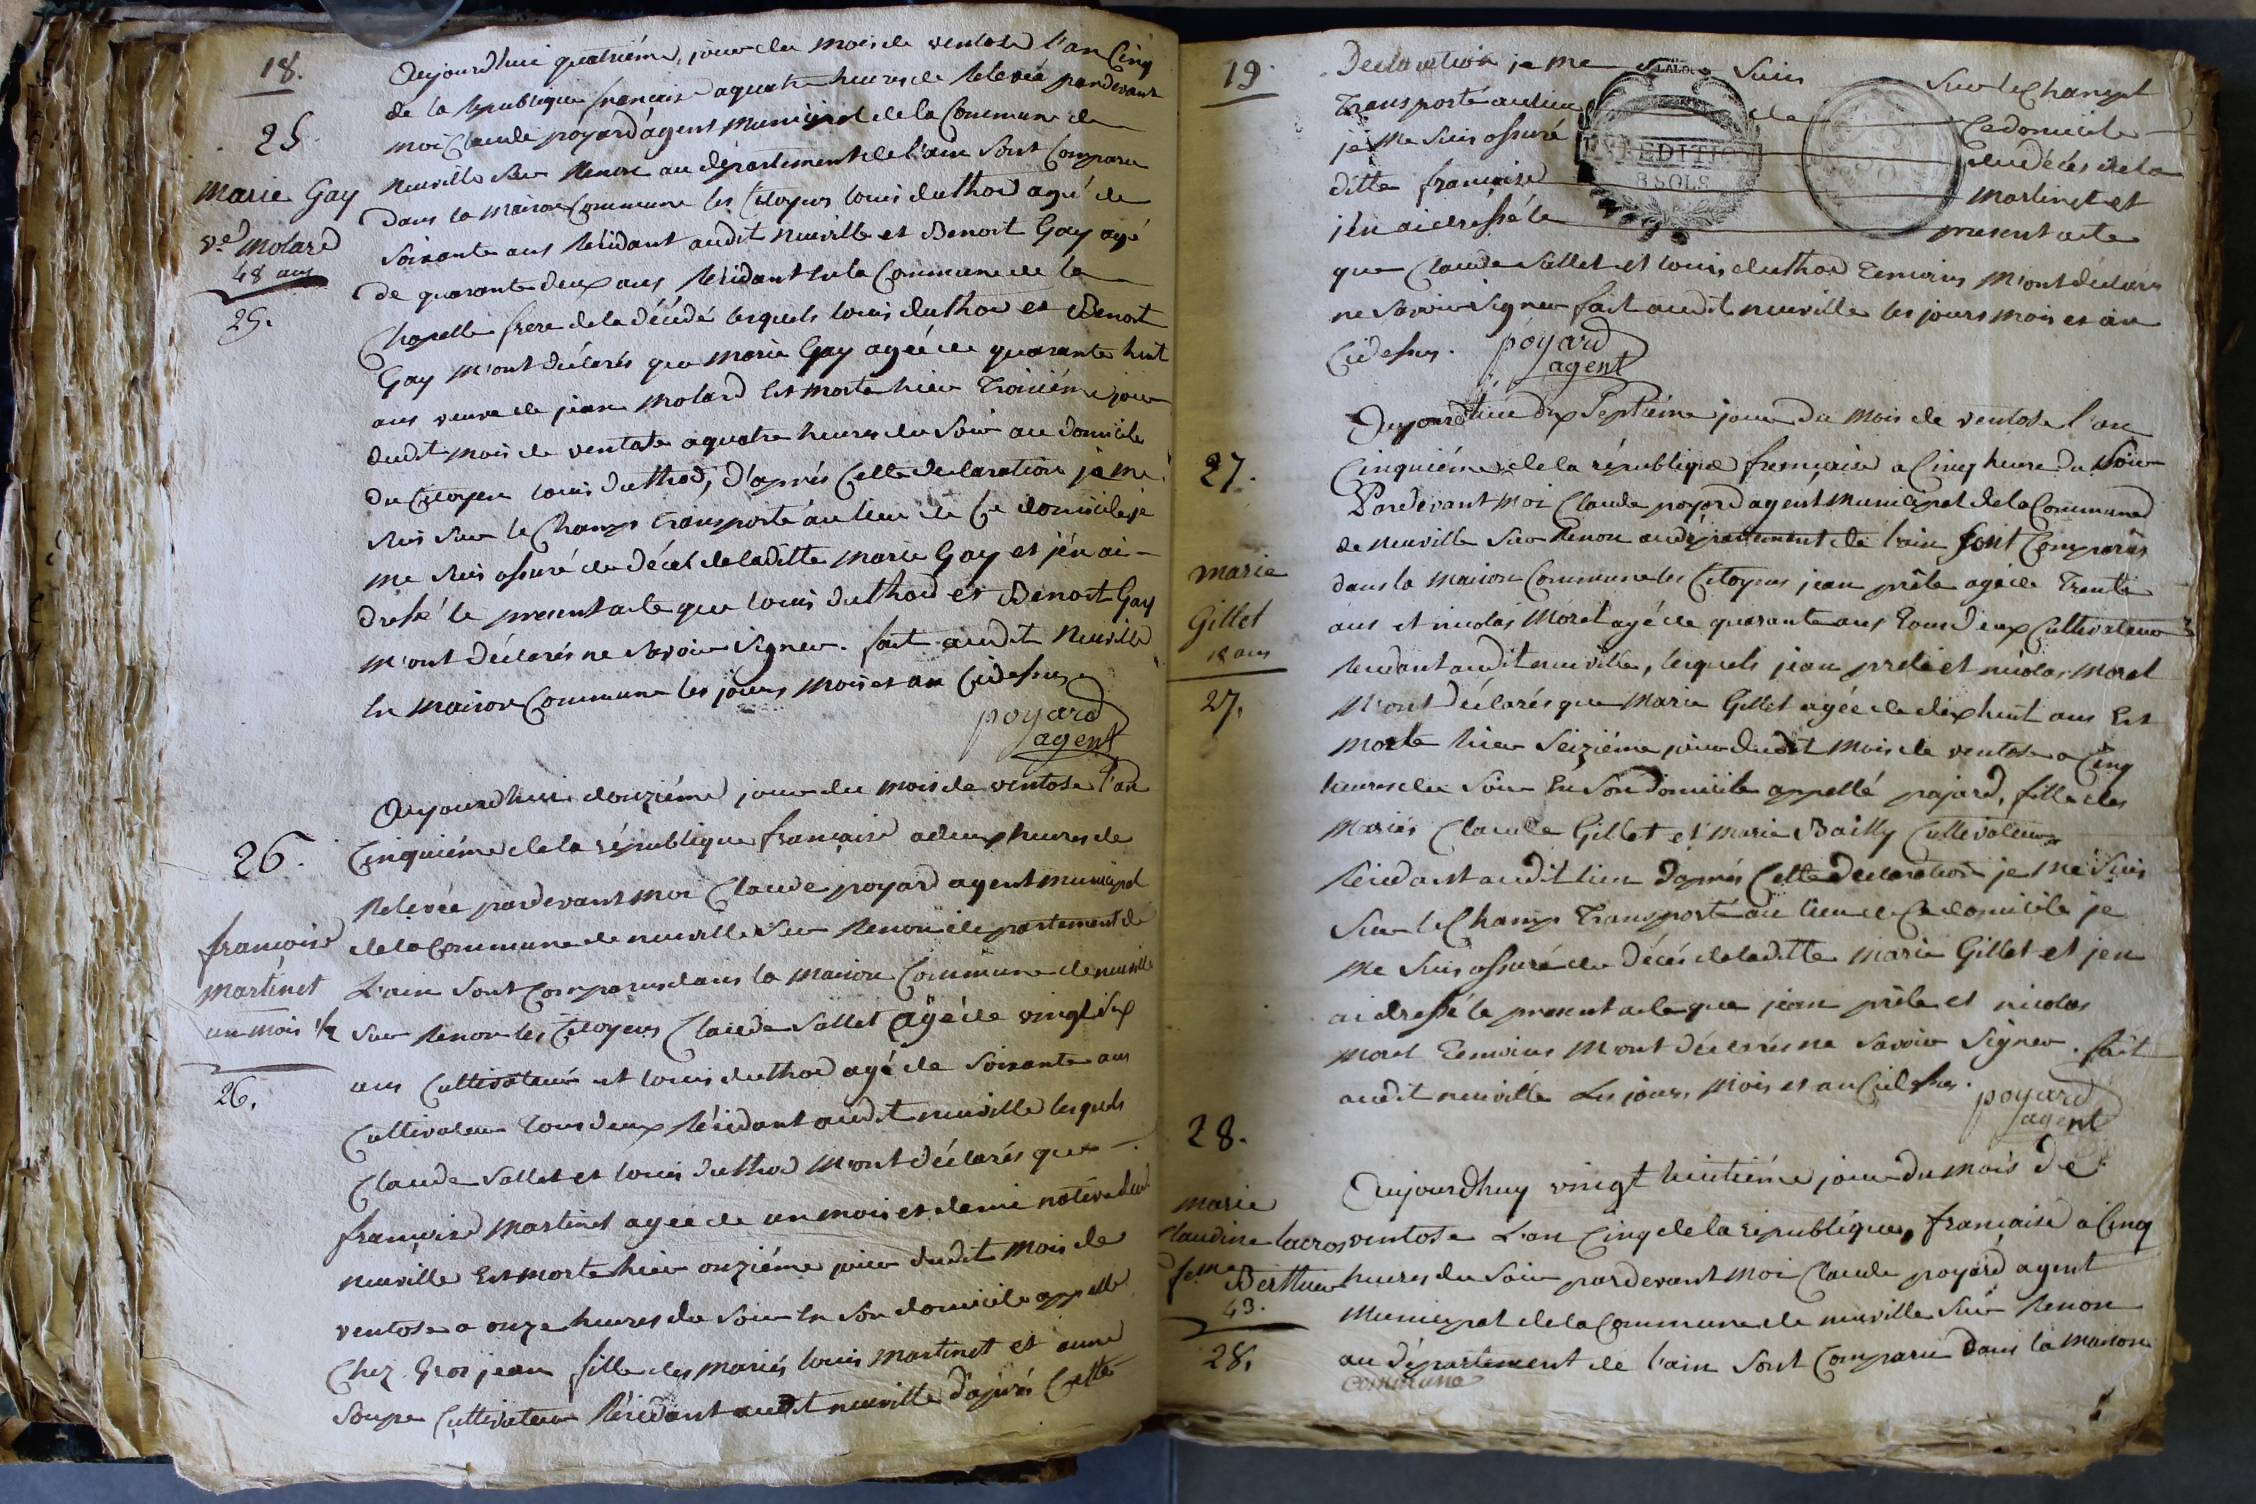 18.
Aujourdhui quatriéme jour du mois de ventose l'an Cinq
de la republique francaise a quatre heures de Relevée pardevant
moi Claude poyard agent municipal de la Commune de
neuville sur Renon au département de l'ain sont Comparu
dans la maison Commune les Citoyens louis duthod agé de
soixante ans Résidant audit neuville et Benoit Gay agé
de quarante deux ans Résidant sur la Commune de la
Chapelle frere de la décédé lesquels louis duthod et Benoit
Gay m'ont déclarés que marie Gay agée de quarante huit
ans veuve de jean molard Est morte hier Troisiéme jour
dudit mois de ventose a quatre heures du soir au domicile
du Citoyen louis duthod, d'aprés Cette declaration je me
suis sur le Champ transporté au lieu de Ce domicile je
me suis assuré du décés de laditte marie Gay et j'en ai
dressé le present acte que louis duthod et Benoit Gay
m'ont déclarés ne savoir signer. fait audit neuville
En maison Commune les jours mois et an Cidessus
poyard
agent
25
marie Gay
ve. molard
48 ans
25.
Aujourdhui douziéme jour du mois de ventose l'an
Cinquiéme de la république française a deux heures de
Relevée pardevant moi Claude poyard agent municipal
de la Commune de neuville sur Renon département de
L'ain sont Comparus dans la maison Commune de neuville
sur Renon les Citoyens Claude Sallet agé de vingt six
ans Cultivateur et louis duthod agé de soixante ans
Cultivateur tous deux Résidant audit neuville lesquels
Claude Sallet et louis duthod m'ont déclarés que
françoise martinet agée de un mois et demie native dud
neuville Est morte hier onziéme jour dudit mois de
ventose a onze heures du soir En son domicile appellé
Chez Gros jean fille des mariés louis martinet et anne
soupe Cultivateur Résidant audit neuville d'aprés Cette
26.
francoise
martinet
un mois 1/2
26.
19
Declaration je me suis sur le Champt
Transporté au lieu de Ce domicile
je me suis assuré du décés de la
ditte françoise martinet et
j'en ai dressé le present acte
EXPEDITION
8 SOLS
que Claude Sallet et louis duthod Temoins m'ont déclarés
ne savoir signer fait audit neuville les jours mois et an
Cidessus. poyard
agent
Aujourdhui dix Septiéme jour du mois de ventose l'an
Cinquiéme de la république française a Cinq heure du Soir
Pardevant moi Claude poyard agent municipal de la Commune
de neuville sur Renon au département de l'ain sont Comparus
dans la maison Commune les Citoyens jean prêle agé de Trente
ans et nicolas Morel agé de quarante ans tous deux Cultivateur
Residant audit neuville, lesquels jean prele et nicolas morel
m'ont déclarés que marie Gillet agée de dix huit ans Est
morte hier seiziéme jour dudit mois de ventose a Cinq
heures du soir En son domicile appellé pajard, fille des
mariés Claude Gillet et marie Bailly Cultivateurs
Résidant audit lieu daprés Cette declaration je me suis
sur le Champ Transporté au lieu de Ce domicile je
me suis assuré du décés de laditte marie Gillet et jen
ai dressé le present acte que jean prêle et nicolas
morel Temoins m'ont déclarés ne savoir signer. fait
audit neuville Les jours mois et an Cidessus.
poyard
agent
27.
marie
Gillet
18 ans
27.
28.
Aujourdhuy vingt huitiéme jour du mois de
ventose L'an Cinq de la république, française a Cinq
heures du soir pardevant moi Claude poyard agent
municipal de la Commune de neuville sur Renon
au département de l'ain sont Comparu dans la maison
commune
marie
Claudine lacros
feme
Berthier
43.
28.